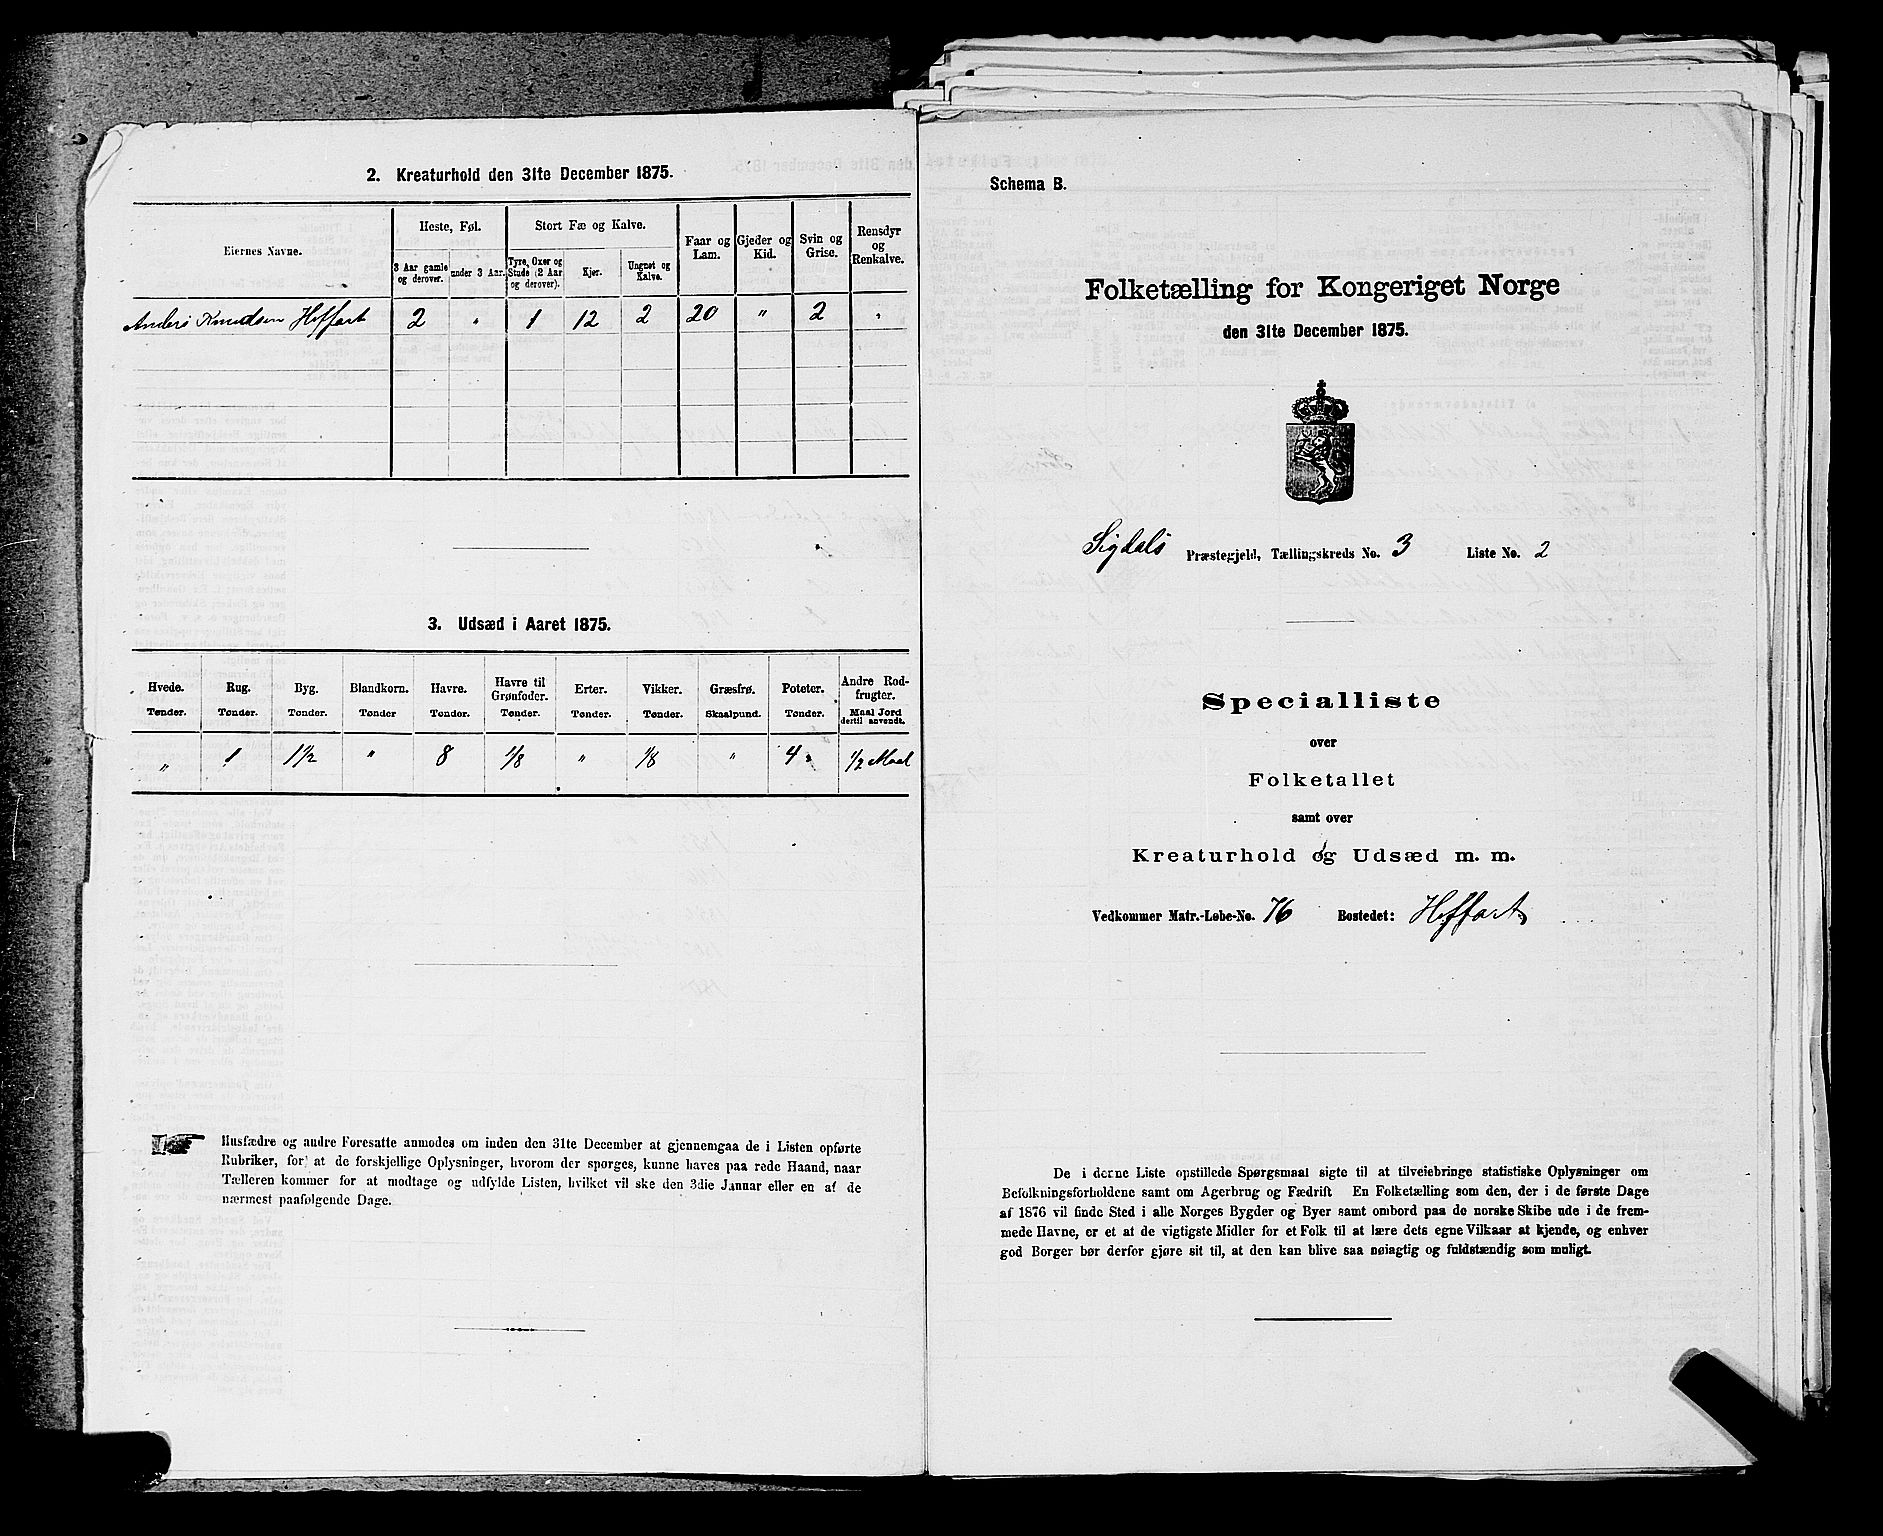 2. Kreaturhold den 31te December 1875.
Eiernes Navne.
Heste, Føl.
Stort Fæ og Kalve.
Faar og Lam.
Gjeder og Kid.
Svin og Grise.
Rensdyr og Renkalve.
3 Aar gamle og derover.
under 3 Aar.
Tyre, Oxer og Stude (2 Aar og derover).
Kjør.
Ungnet og Kalve.
Anders Knudsen Hoffart 2 " 1 12 2 20 " 2 "
3. Udsæd i Aaret 1875.
Hvede. Rug. Byg. Blandkorn. Havre. Havre til Grønfoder. Erter. Vikker. Græsfrø. Poteter. Andre Rodfrugter.
Tønder. Tønder. Tønder. Tønder Tønder. Tønder. Tønder. Tønder. Skaalpund. Tønder. Maal Jord dertil anvendt.
" 1 1 1/2 " 8 1/8 " 1/8 " 4 1/2 Maal
Husfædre og andre Foresatte anmodes om inden den 31te December at gjennemgaa de i Listen opførte
Rubriker, for at de forskjellige Oplysninger, hvorom der spørges, kunne haves paa rede Haand, naar
Tælleren kommer for at modtage og udfylde Listen, hvilket vil ske den 3die Januar eller en af de
nærmest paafølgende Dage.
Schema B.
Folketælling for Kongeriget Norge
den 31te December 1875.
Sigdals Præstegjeld, Tællingskreds No. 3 Liste No. 2
Specialliste
over
Folketallet
samt over
Kreaturhold og Udsæd m. m.
Vedkommer Matr.-Løbe-No. 76 Bostedet: Hoffart
De i denne Liste opstillede Spørgsmaal sigte til at tilveiebringe statistiske Oplysninger om
Befolkningsforholdene samt om Agerbrug og Fædrift En Folketælling som den, der i de første Dage
af 1876 vil finde Sted i alle Norges Bygder og Byer samt ombord paa de norske Skibe ude i de frem-
mede Havne, er et af de vigtigste Midler for et Folk til at lære dets egne Vilkaar at kjende, og enhver
god Borger bør derfor gjøre sit til, at den kan blive saa nøiagtig og fuldstændig som muligt.